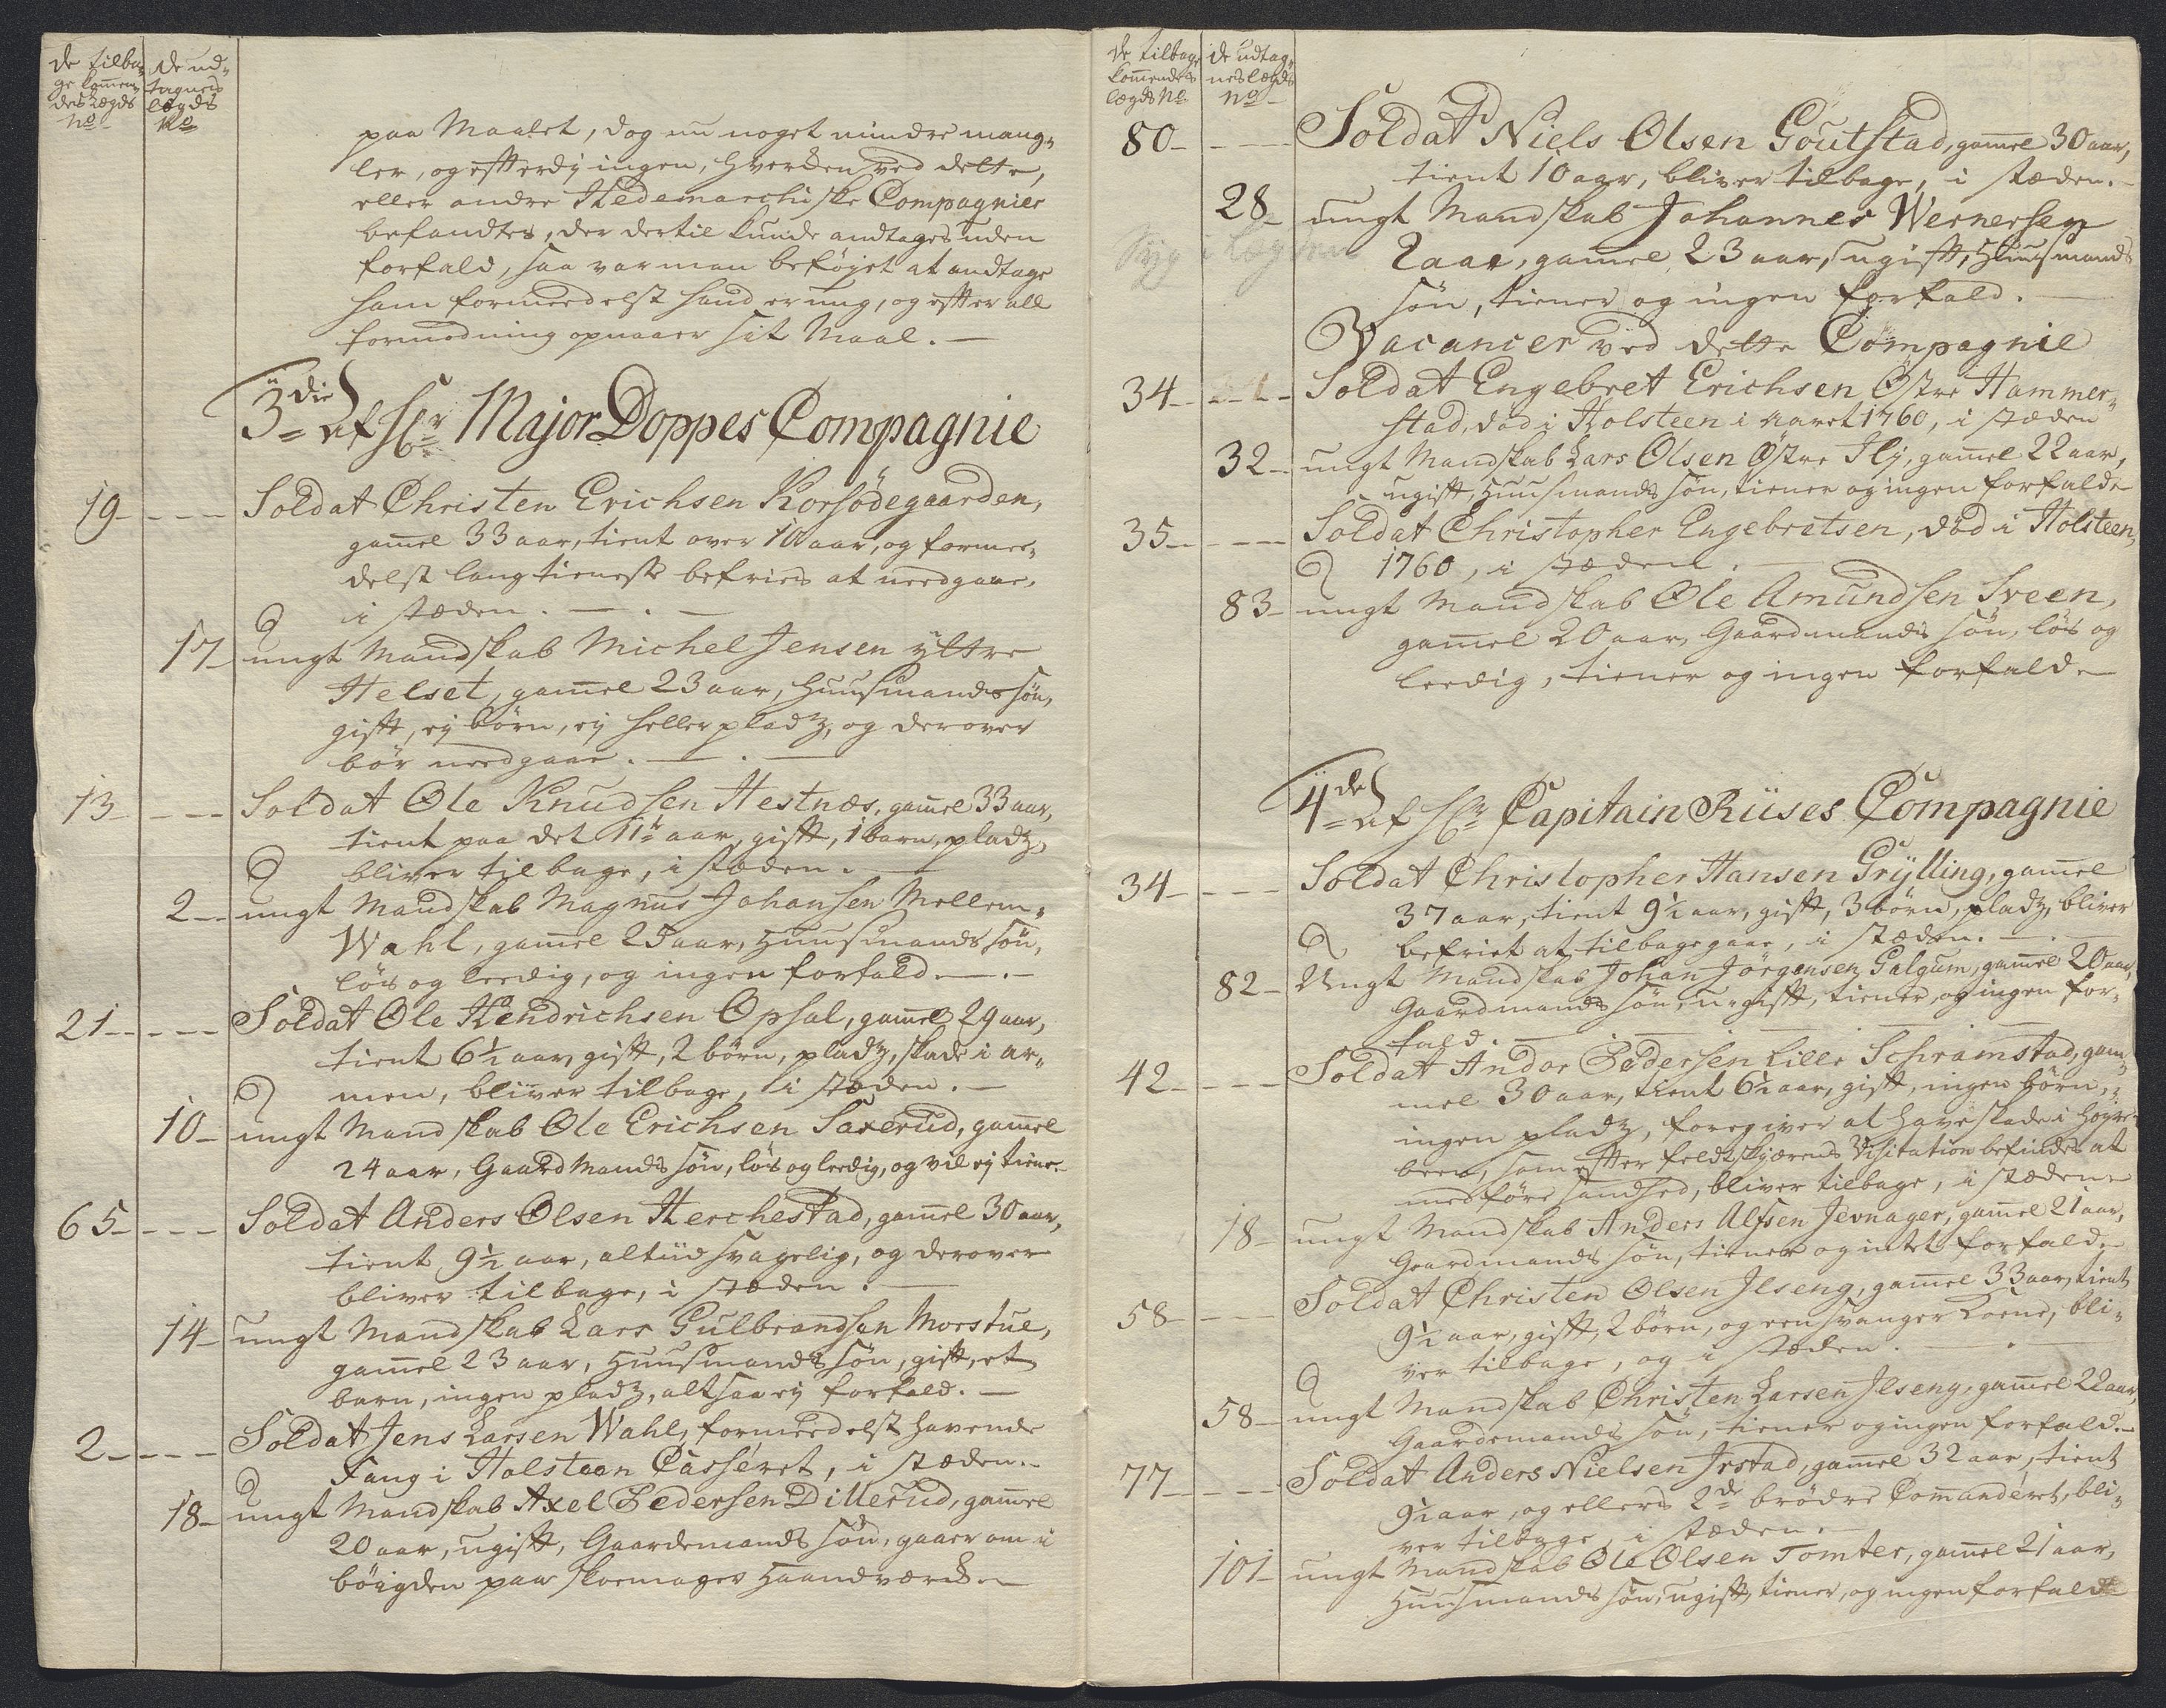 de tilba-
ge komen-
des Lægds
No
de ud-
tagnes
lægds
No
paa Maalet, dog nu noget mindre mang-
ler, og efterdi ingen, hverken ved dette,
eller andre Hedemarchiske Compagnier
befandtes, der dertil kunde andtages uden
forfald, saa var man beføjet at andtage
ham formedelst hand er ung, og efter all
formodning opnaaer sit Maal. —
3die af Hr Major Doppes Compagnie
19 - - - Soldat Christen Erichsen Korsødegaarden,
gamel 33 aar, tient over 10 aar, og formee-
delst lang tieneste befries at needgaae,
i stæden. — . —
17 ungt Mandskab Michel Jensen yttre
Helset, gamel 23 aar, Huusmands søn,
gift, ej børn, ej heller pladz, og derover
bør needgaae. — . —
13 - - - Soldat Ole Knudsen Hestnæs, gamel 33 aar,
tient paa det 11te aar, gift, 1 barn, pladz,
bliver tilbage, i stæden. —
2 - ungt Mandskab Magnus Johansen Mellem-
Wahl, gamel 25 aar, Huusmands søn,
løs og leedig, og ingen forfald. — . —
21 - - - Soldat Ole Hendrichsen Opsal, gamel 29 aar,
tient 6½ aar, gift, 2 børn, pladz, skade i ar-
men, bliver tilbage, i stæden. —
10 - ungt Mandskab Ole Erichsen Saxerud, gamel
24 aar, Gaardmands søn, løs og leedig, og vil ej tiene. -
65 - - - Soldat Anders Olsen Herchestad, gamel 30 aar,
tient 9½ aar, altiid svagelig, og derover
bliver tilbage, i stæden. —
14 - ungt Mandskab Lars Gulbrandsen Morstue,
gamel 23 aar, Huusmands søn, gift, et
barn, ingen pladz, altsaa ej forfald. —
2 - - - Soldat Jens Larsen Wahl, formeedelst havende
Fang i Holsteen Casseret, i stæden. -
18 - ungt Mandskab Axel Pedersen Dillerud, gamel
20 aar, ugift, Gaardemands søn, gaaer om i
bøigden paa skoemager Haandværk. —
de tilbage
komendes
lægds No
de udtag-
nes lægds
No
80 - - - Soldat Niels Olsen Goutstad, gamel 30 aar,
tient 10 aar, bliver tilbage, i stæden. -
28 - ungt Mandskab Johannes Wernersen
Syg i Lægden
Laae, gamel 23 aar, ugift, Huusmands
søn, tiener og ingen forfald. —
Vacancer ved dette Compagnie
34 - - - Soldat Engebret Erichsen Østre Hammer-
stad, død i Holsteen i aaret 1760, i stæden
32 - ungt Mandskab Lars Olsen Østre Ilj, gamel 22 aar,
ugift, Huusmands søn, tiener og ingen forfald. -
35 - - - Soldat Christopher Engebretsen, død i Holsteen,
1760, i stæden. —
83 - ungt Mandskab Ole Amundsen Sveen,
gamel 20 aar, Gaardmands søn, løs og
leedig, tiener og ingen forfald. -
4de af Hr Capitain Riises Compagnie
34 - - - Soldat Christopher Hansen Grylling, gamel
37 aar, tient 9½ aar, gift, 3 børn, pladz, bliver
befriet at tilbagegaae, i stæden. — . —
82 - Ungt Mandskab Johan Jørgensen Galgum, gamel 20 aar,
Gaardmands søn, u-gift, tiener, og ingen for-
fald. — . —
42 - - - Soldat Andor Pedersen Lille Schramstad, gam-
mel 30 aar, tient 6½ aar, gift, ingen børn,
ingen pladz, foregiver at have skade i høyre
been, som efter feldtskjærens Visitation befindes at
medføre sandhed, bliver tilbage, i stæden -
18 - ungt Mandskab Anders Alfsen Jevnager, gamel 21 aar,
Gaardmands søn, tiener og intet forfald. -
58 - - - Soldat Christen Olsen Ilseng, gamel 33 aar, tient
9½ aar, gift, 2 børn, og een svanger Kone, bli-
ver tilbage, og i stæden. — . —
58 - ungt Mandskab Christen Larsen Ilseng, gamel 22 aar,
Gaardemands søn, tiener og ingen forfald. -
77 - - - Soldat Anders Nielsen Irstad, gamel 32 aar, tient
9½ aar, og ellers 2de brødre Comanderet, bli-
ver tilbage, i stæden. -
101 - ungt Mandskab Ole Olsen Tomter, gamel 21 aar,
Huusmands søn, ugift, tiener, og ingen forfald